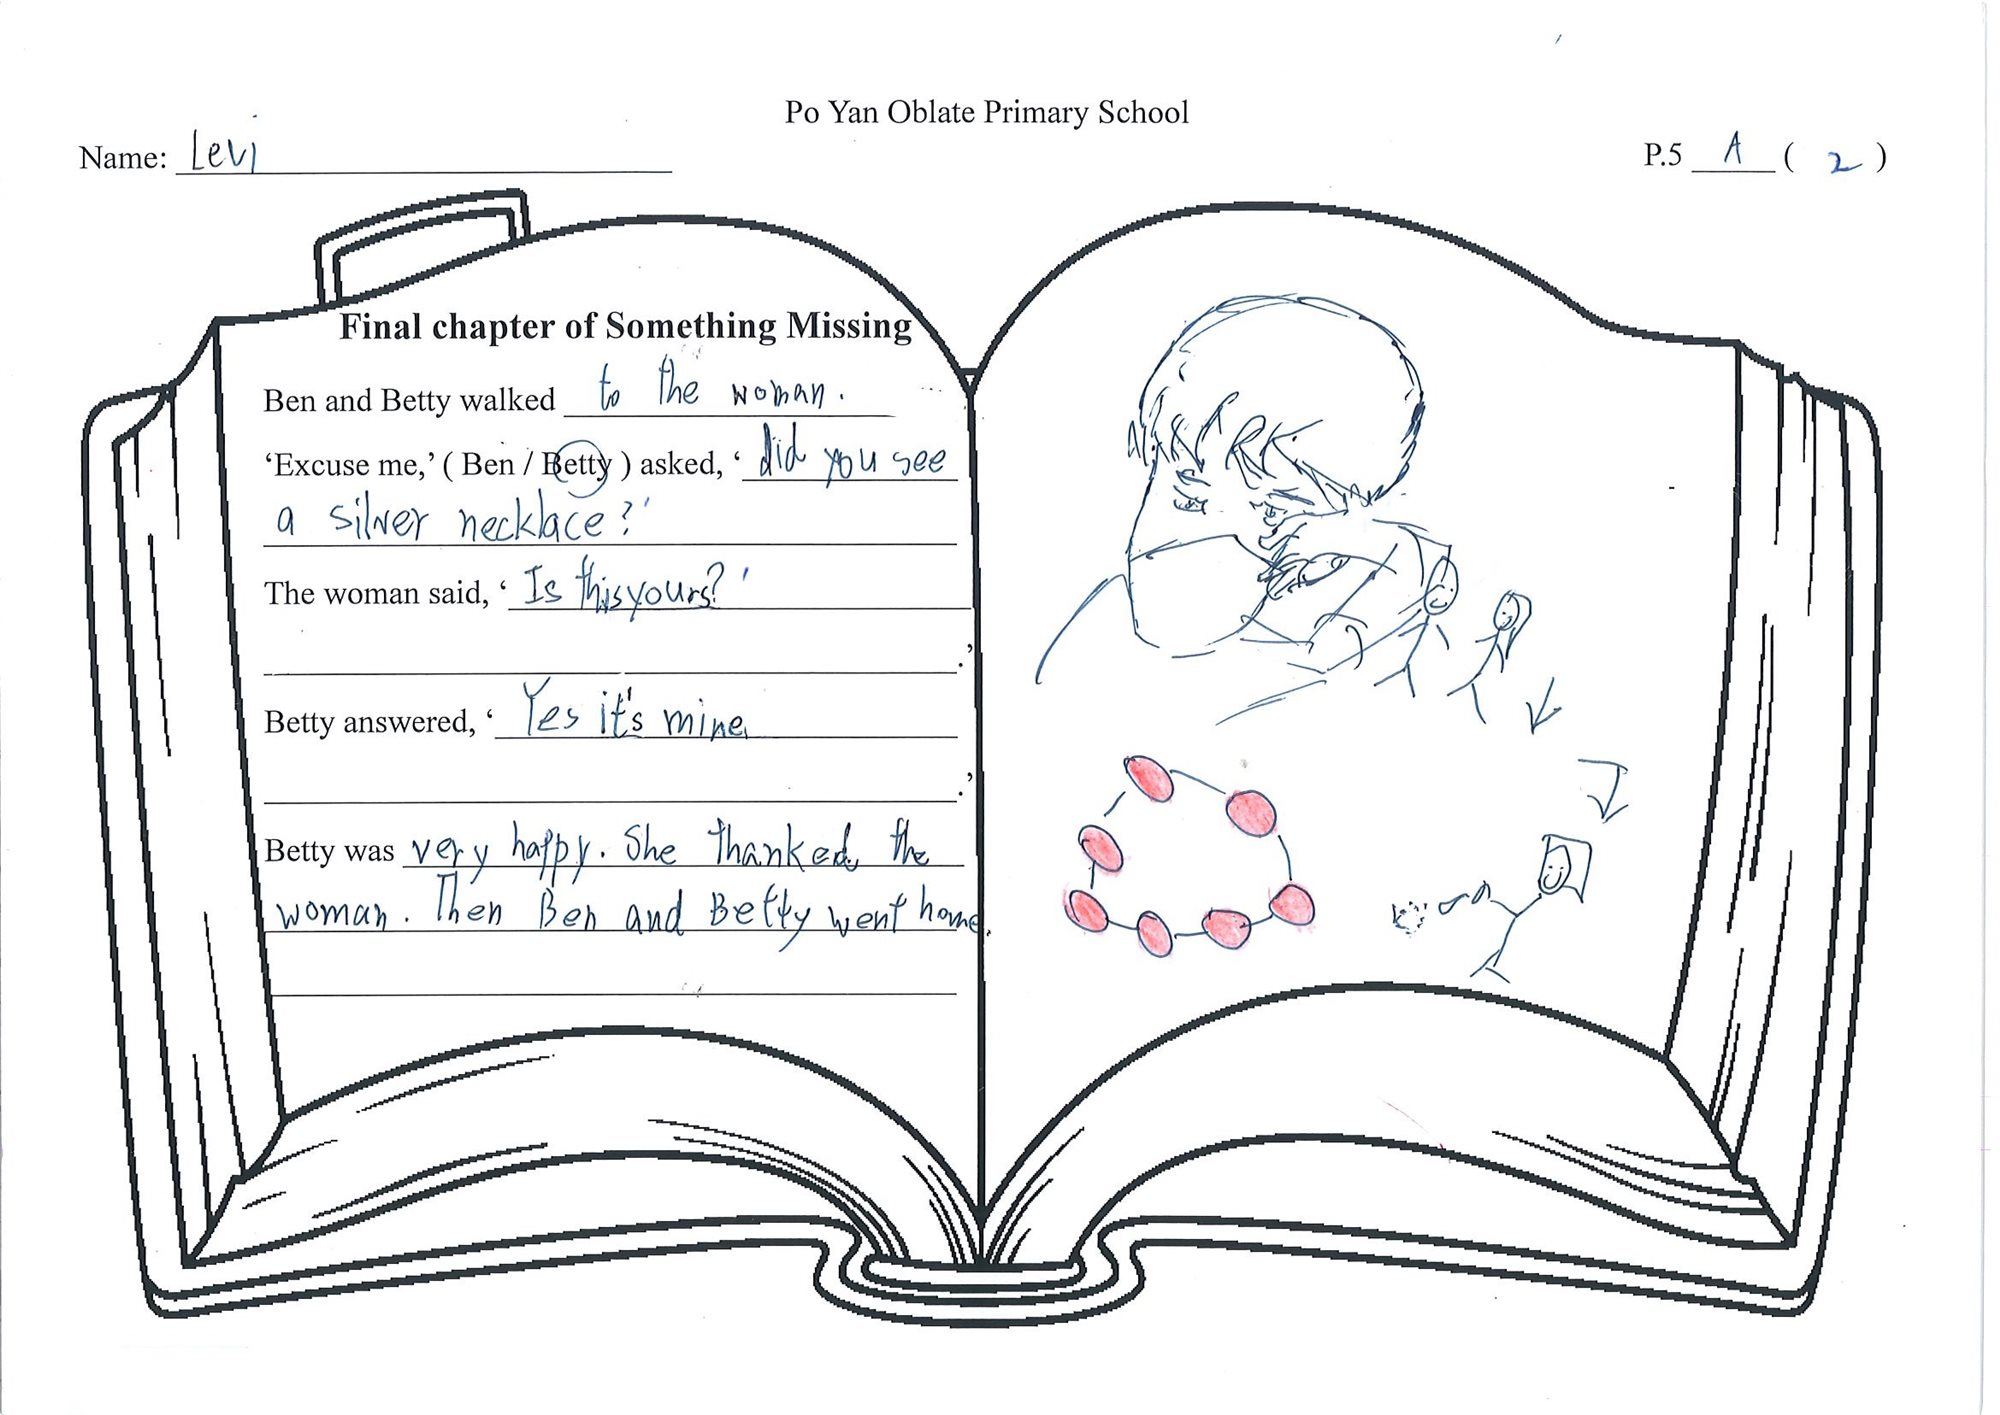 Po Yan Oblate Primary School
Name: Levi
P.5 A ( 2 )
Final chapter of Something Missing
Ben and Betty walked to the woman.
‘Excuse me,’ ( Ben / Betty ) asked, ‘ did you see
a silver necklace?’
The woman said, ‘ Is this yours? ’
.’
Betty answered, ‘ Yes it's mine
.’
Betty was very happy. She thanked the
woman. Then Ben and Betty went home.